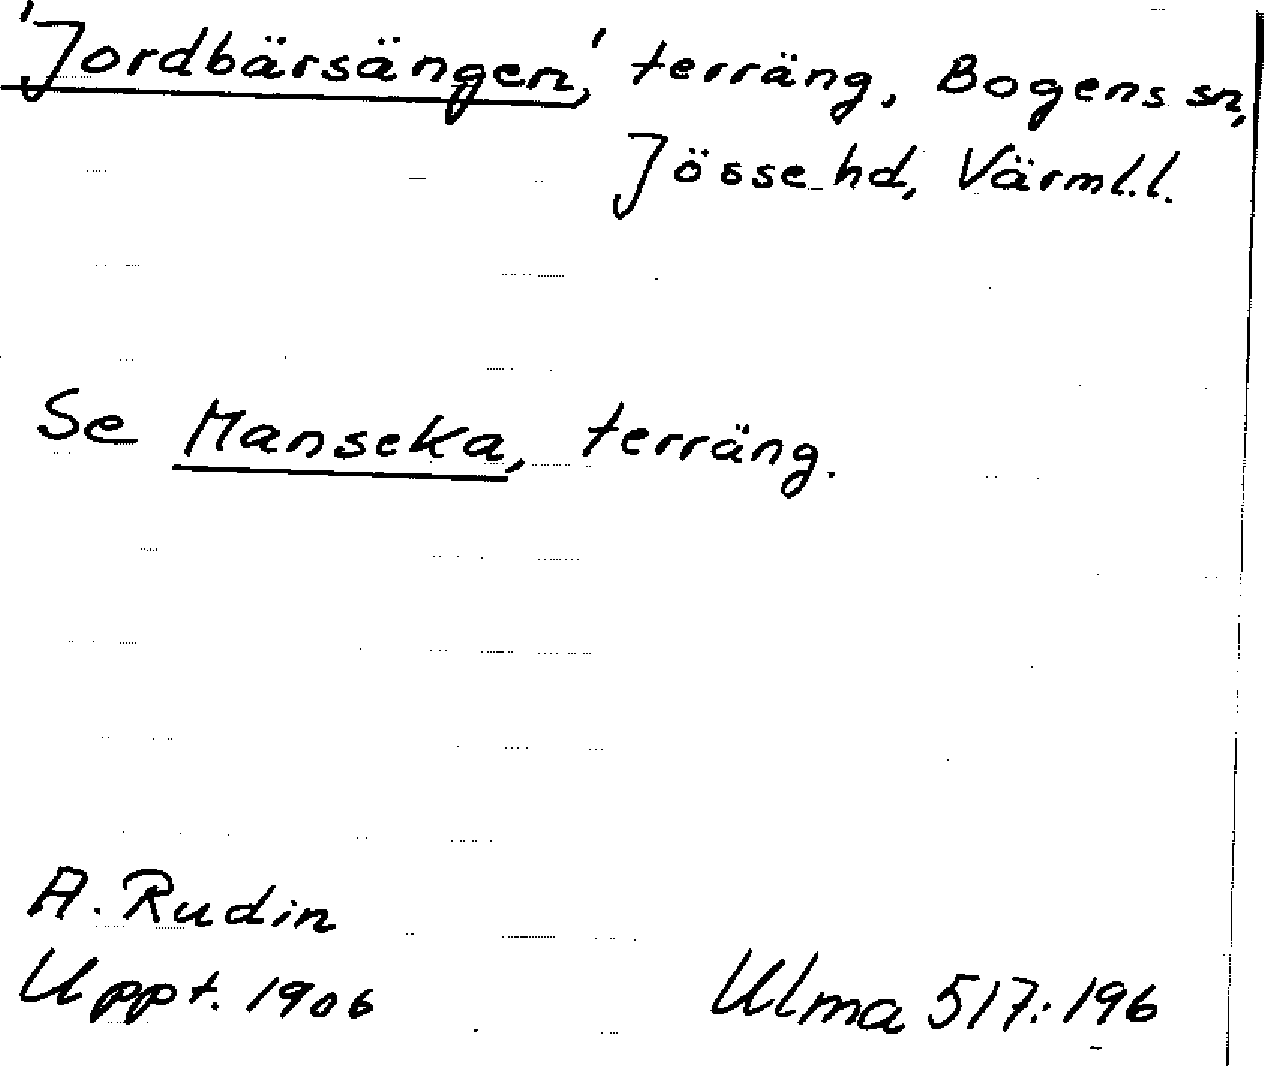 'Jordbärsängen,' terräng, Bogens sn,
Jösse hd, Värml.l.
Se Manseka, terräng.
A. Rudin
Uppt. 1906
Ulma 517:196